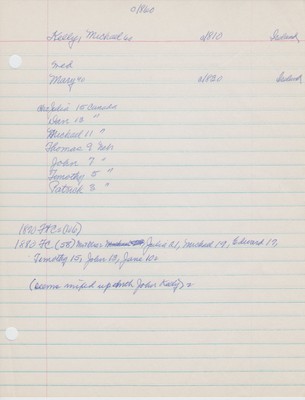 c/1860
Kelly, Michael 40 c/1810 Ireland
med
Mary 40 c/1820 Ireland
Julia 15 Canada
Dan 13 "
Michael 11 "
Thomas 9 Mass
John 7 "
Timothy 5 "
Patrick 3 "
1880 FC (58) Julia 21, Michael 19, Edward 17,
Timothy 15, John 12, Jane 10+
(Seems mixed up with John Kelly)